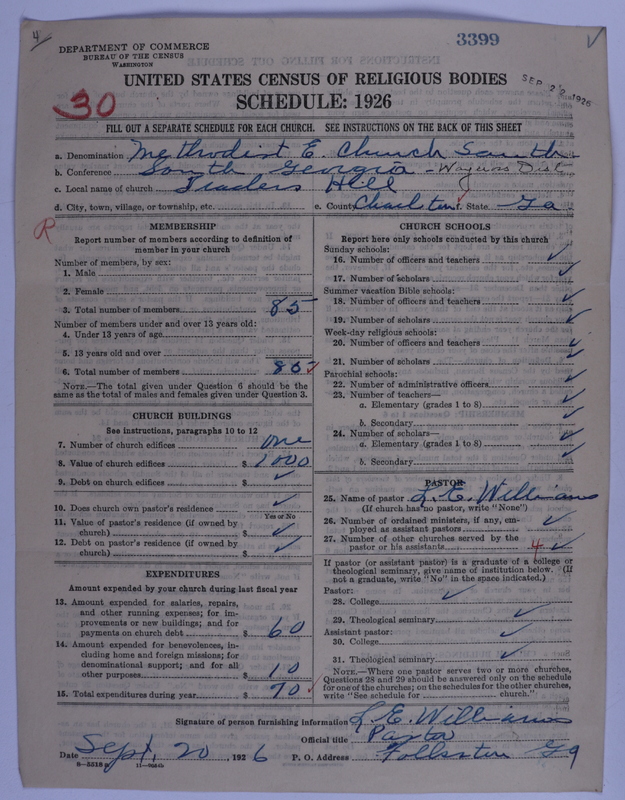 4
3399
DEPARTMENT OF COMMERCE
BUREAU OF THE CENSUS
WASHINGTON
UNITED STATES CENSUS OF RELIGIOUS BODIES
SEP 22 1926
SCHEDULE: 1926
30
FILL OUT A SEPARATE SCHEDULE FOR EACH CHURCH. SEE INSTRUCTIONS ON THE BACK OF THIS SHEET
a. Denomination Methodist E. Church South
b. Conference South Georgia - Waycross Dist
c. Local name of church Traders Hill
d. City, town, village, or township, etc. e. County Charlton f. State Ga
R
MEMBERSHIP
Report number of members according to definition of
member in your church
Number of members, by sex:
1. Male
2. Female
3. Total number of members 85
Number of members under and over 13 years old:
4. Under 13 years of age
5. 13 years old and over
6. Total number of members 85
NOTE.—The total given under Question 6 should be the
same as the total of males and females given under Question 3.
CHURCH BUILDINGS
See instructions, paragraphs 10 to 12
7. Number of church edifices one
8. Value of church edifices $ 1000
9. Debt on church edifices $
10. Does church own pastor's residence
Yes or No
11. Value of pastor's residence (if owned by
church) $
12. Debt on pastor's residence (if owned by
church) $
EXPENDITURES
Amount expended by your church during last fiscal year
13. Amount expended for salaries, repairs,
and other running expenses; for im-
provements or new buildings; and for
payments on church debt $ 60
14. Amount expended for benevolences, in-
cluding home and foreign missions; for
denominational support; and for all
other purposes $ 10
15. Total expenditures during year $ 70
CHURCH SCHOOLS
Report here only schools conducted by this church
Sunday schools:
16. Number of officers and teachers
17. Number of scholars
Summer vacation Bible schools:
18. Number of officers and teachers
19. Number of scholars
Week-day religious schools:
20. Number of officers and teachers
21. Number of scholars
Parochial schools:
22. Number of administrative officers
23. Number of teachers—
a. Elementary (grades 1 to 8)
b. Secondary
24. Number of scholars—
a. Elementary (grades 1 to 8)
b. Secondary
PASTOR
25. Name of pastor L. E. Williams
(If church has no pastor, write "None")
26. Number of ordained ministers, if any, em-
ployed as assistant pastors
27. Number of other churches served by the
pastor or his assistants 4
If pastor (or assistant pastor) is a graduate of a college or
theological seminary, give name of institution below. (If
not a graduate, write "No" in the space indicated.)
Pastor:
28. College
29. Theological seminary
Assistant pastor:
30. College
31. Theological seminary
NOTE.—Where one pastor serves two or more churches,
Questions 28 and 29 should be answered only on the schedule
for one of the churches; on the schedules for the other churches,
write "See schedule for church."
Signature of person furnishing information L. E. Williams
Official title Pastor
Date Sept. 20, 1926 P. O. Address Folkston Ga